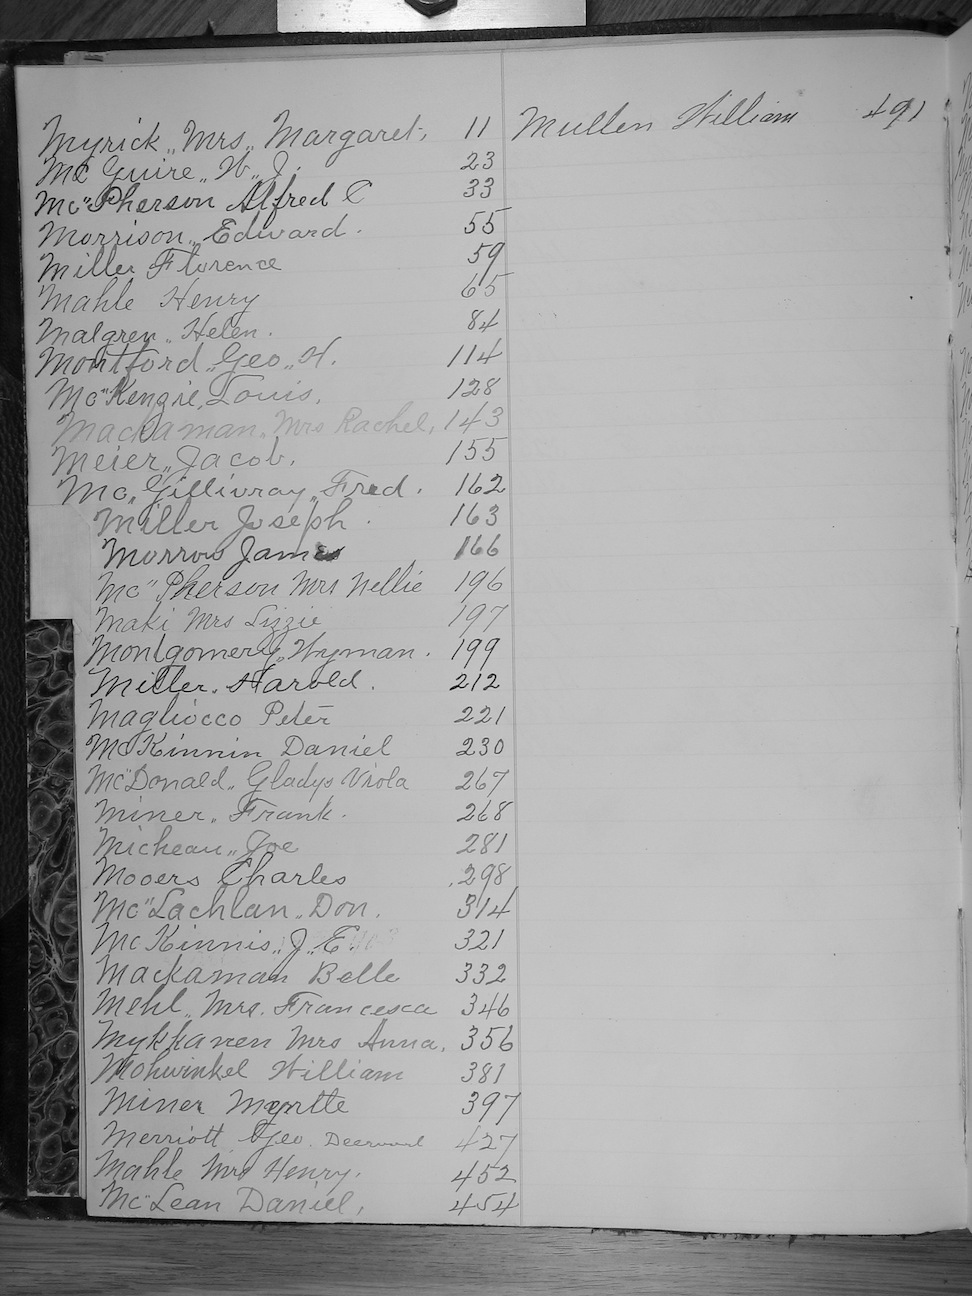 Myrick,, Mrs,, Margaret. 11
Mc Guire,, W,, J. 23
Mc"Pherson Alfred C 33
Morrison,, Edward. 55
Miller Florence 59
Mahle Henry 65
Malgren,, Helen. 84
Montford,, Geo,, H. 114
Mc"Kengie, Louis. 128
Mackaman,, Mrs Rachel, 143
Meier,, Jacob. 155
Mc,, Gillivray,, Fred. 162
Miller Joseph. 163
Morrow James 166
Mc" Pherson Mrs Nellie 196
Maki Mrs Lizzie 197
Montgomery,, Wyman. 199
Miller. Harold. 212
Magliocco Peter 221
McKinnin Daniel 230
Mc"Donald,, Gladys Viola 267
Miner,, Frank. 268
Micheau,, Joe 281
Mooers Charles 298
Mc"Lachlan,, Don. 314
McKinnis,, J,, E. 321
Mackaman Belle 332
Mehl,, Mrs. Francesca 346
Mykkanen Mrs Anna, 356
Mohwinkel William 381
Miner Myrtle 397
Merriott Geo. Deerwood 427
Mahle Mrs Henry. 452
Mc"Lean Daniel, 454
Mullen William 491